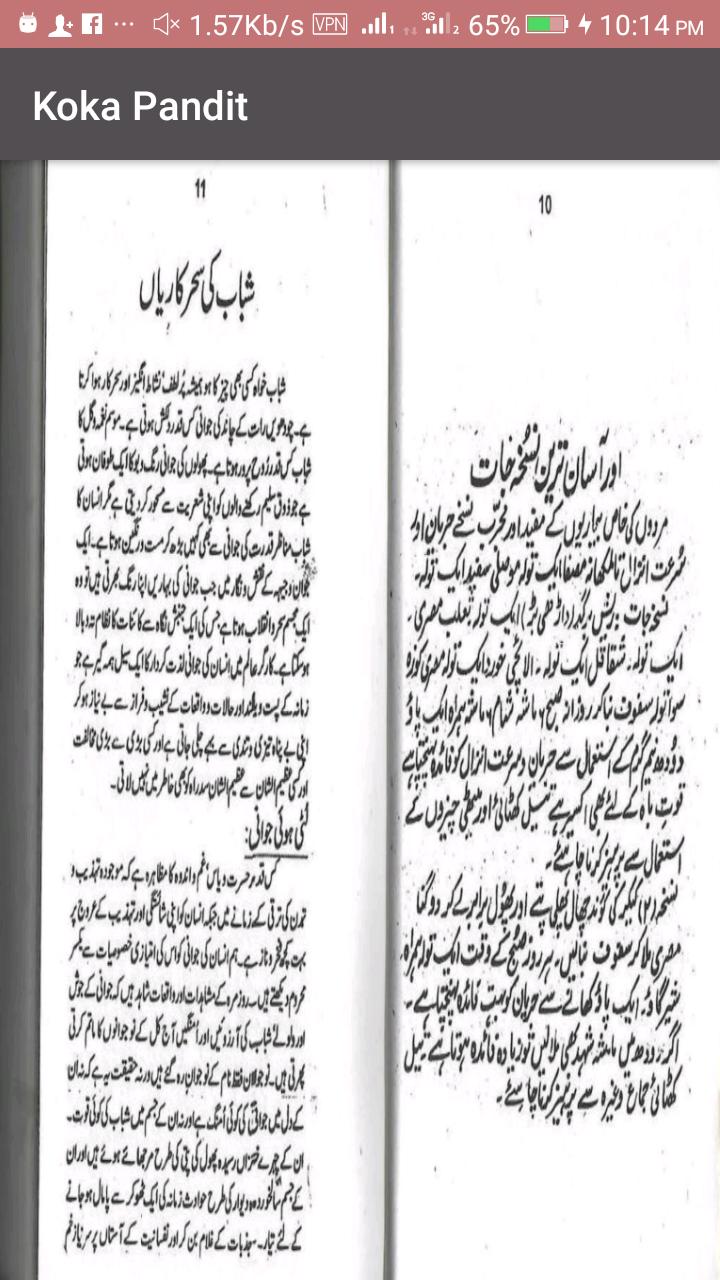 1.57Kb/s VPN 1 3G 2 65% 10:14 PM
Koka Pandit
10
اور آسان ترین نسخہ جات
مردوں کی خاص بیماریوں کے مفید اور مجرّب نسخے جریان اور
سُرعت انزال تالمکھانہ مصفا ایک تولہ موصلی سفید ایک تولہ۔
نسخہ جات : برگد (داڑھی ایک تولہ ثعلب مصری۔
ایک تولہ۔ شقاقل ایک تولہ۔ الائچی خورد ایک تولہ مصری کوزہ
سوا تولہ سفوف بنا کر روزانہ صبح ۶ ماشہ شام ۶ ماشہ ہمراہ ایک پاؤ
دودھ نیم گرم کے استعمال سے جریان و سرعت انزال کو فائدہ پہنچتا ہے
قوتِ باہ کے لئے بھی اکسیر ہے تیل کھٹائی اور میٹھی چیزوں کے
استعمال سے پرہیز کرنا چاہئے۔
نسخہ (۲) کیکر کی گوند چھال پھلی پتے اور پھول برابر لے کر دوگنا
مصری ملا کر سفوف بنالیں۔ ہر روز صبح کے وقت ایک تولہ ہمراہ
شیر گاؤ ایک پاؤ کھانے سے جریان کو بہت فائدہ پہنچتا ہے۔
اگر دودھ میں ماشہ شہد بھی ملالیں تو زیادہ فائدہ ہوتا ہے تیل
کھٹائی جماع وغیرہ سے پرہیز کرنا چاہئے۔
11
شباب کی سحر کاریاں
شباب خواہ کسی بھی چیز کا ہو ہمیشہ پُر لطف نشاط انگیز اور سحر کار ہوا کرتا
ہے۔ چودھویں رات کے چاند کی جوانی کس قدر دلکش ہوتی ہے۔ موسم نغمہ و گل کا
شباب کس قدر روح پرور ہوتا ہے۔ پھولوں کی جوانی رنگ و بو کا ایک طوفان ہوتی
ہے جو ذوق سلیم رکھنے والوں کو اپنی شعریت سے مسحور کر دیتی ہے مگر انسان کا
شباب مناظر قدرت کی جوانی سے بھی کہیں بڑھ کر مست و رنگین ہوتا ہے۔ ایک
جوان وجیہہ کے نقش و نگار میں جب جوانی کی بہاریں اپنا رنگ بھرتی ہیں تو وہ
ایک مجسم سحر و انقلاب ہوتا ہے جس کی ایک جنبش نگاہ سے کائنات کا نظام تہ و بالا
ہو سکتا ہے۔ کارگہ عالم میں انسان کی جوانی لذت کردار کا ایک سیل ہمہ گیر ہے جو
زمانہ کے پست و بلند اور حالات و واقعات کے نشیب و فراز سے بے نیاز ہو کر
اپنی بے پناہ تیزی و تندی سے بہے چلی جاتی ہے اور کسی بڑی سے بڑی مخالفت
اور کسی عظیم الشان سے عظیم الشان سد راہ کو بھی خاطر میں نہیں لاتی۔
لٹی ہوئی جوانی:
کس قدر حسرت و یاس غم و اندوہ کا مظاہرہ ہے کہ موجودہ تہذیب و
تمدن کی ترقی کے زمانے میں جبکہ انسان کو اپنی شائستگی اور تہذیب کے عروج پر
بہت کچھ فخر و ناز ہے۔ ہم انسان کی جوانی کو اس کی امتیازی خصوصیات سے یکسر
محروم دیکھتے ہیں۔ روزمرہ کے مشاہدات اور واقعات شاہد ہیں کہ جوانی کے جوش
اور ولولے شباب کی آرزوئیں اور امنگیں آج کل کے نوجوانوں کا ماتم کرتی
پھرتی ہیں۔ نوجوان فقط نام کے نوجوان رہ گئے ہیں ورنہ حقیقت یہ ہے کہ نہ ان
کے دل میں جوانی کی کوئی امنگ ہے اور نہ ان کے جسم میں شباب کی کوئی قوت۔
ان کے چہرے خزاں رسیدہ پھول کی پتی کی طرح مرجھائے ہوئے ہیں اور ان
کے جسم سالخوردہ دیوار کی طرح حوادث زمانہ کی ایک ٹھوکر سے پامال ہو جانے
کے لئے تیار۔ جذبات کے غلام بن کر اور نفسانیت کے آستاں پر سر نیاز خم